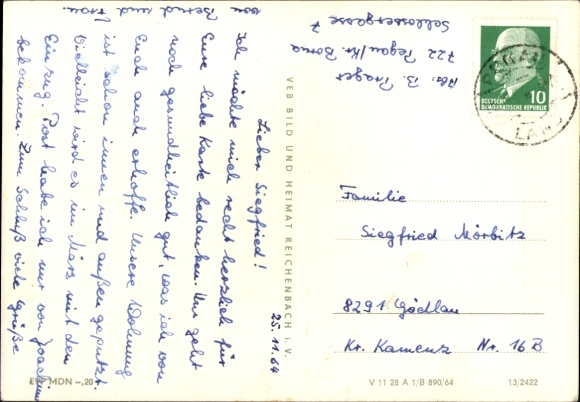 25.11.64
Lieber Siegfried!
Ich möchte mich recht herzlich für
Eure liebe Karte bedanken. Uns geht
noch gesundheitlich gut, was ich von
Euch auch erhoffe. Unsere Wohnung
ist schon innen und außen geputzt.
Vielleicht wird es im März mit den
Einzug. Post habe ich nur von Joachim
bekommen. Zum Schluß viele Grüße
von Bernd und Frau.
Abs: B. Prager
722 Pegau/Kr. Borna
Schlossergasse 7
VEB BILD UND HEIMAT REICHENBACH I. V.
DEUTSCHE
DEMOKRATISCHE REPUBLIK
10
PEGAU
LAND
Familie
Siegfried Mörbitz
8291 Gödlau
Kr. Kamenz Nr. 16B
EVP MDN –,20
V 11 28 A 1/B 890/64
13/2422